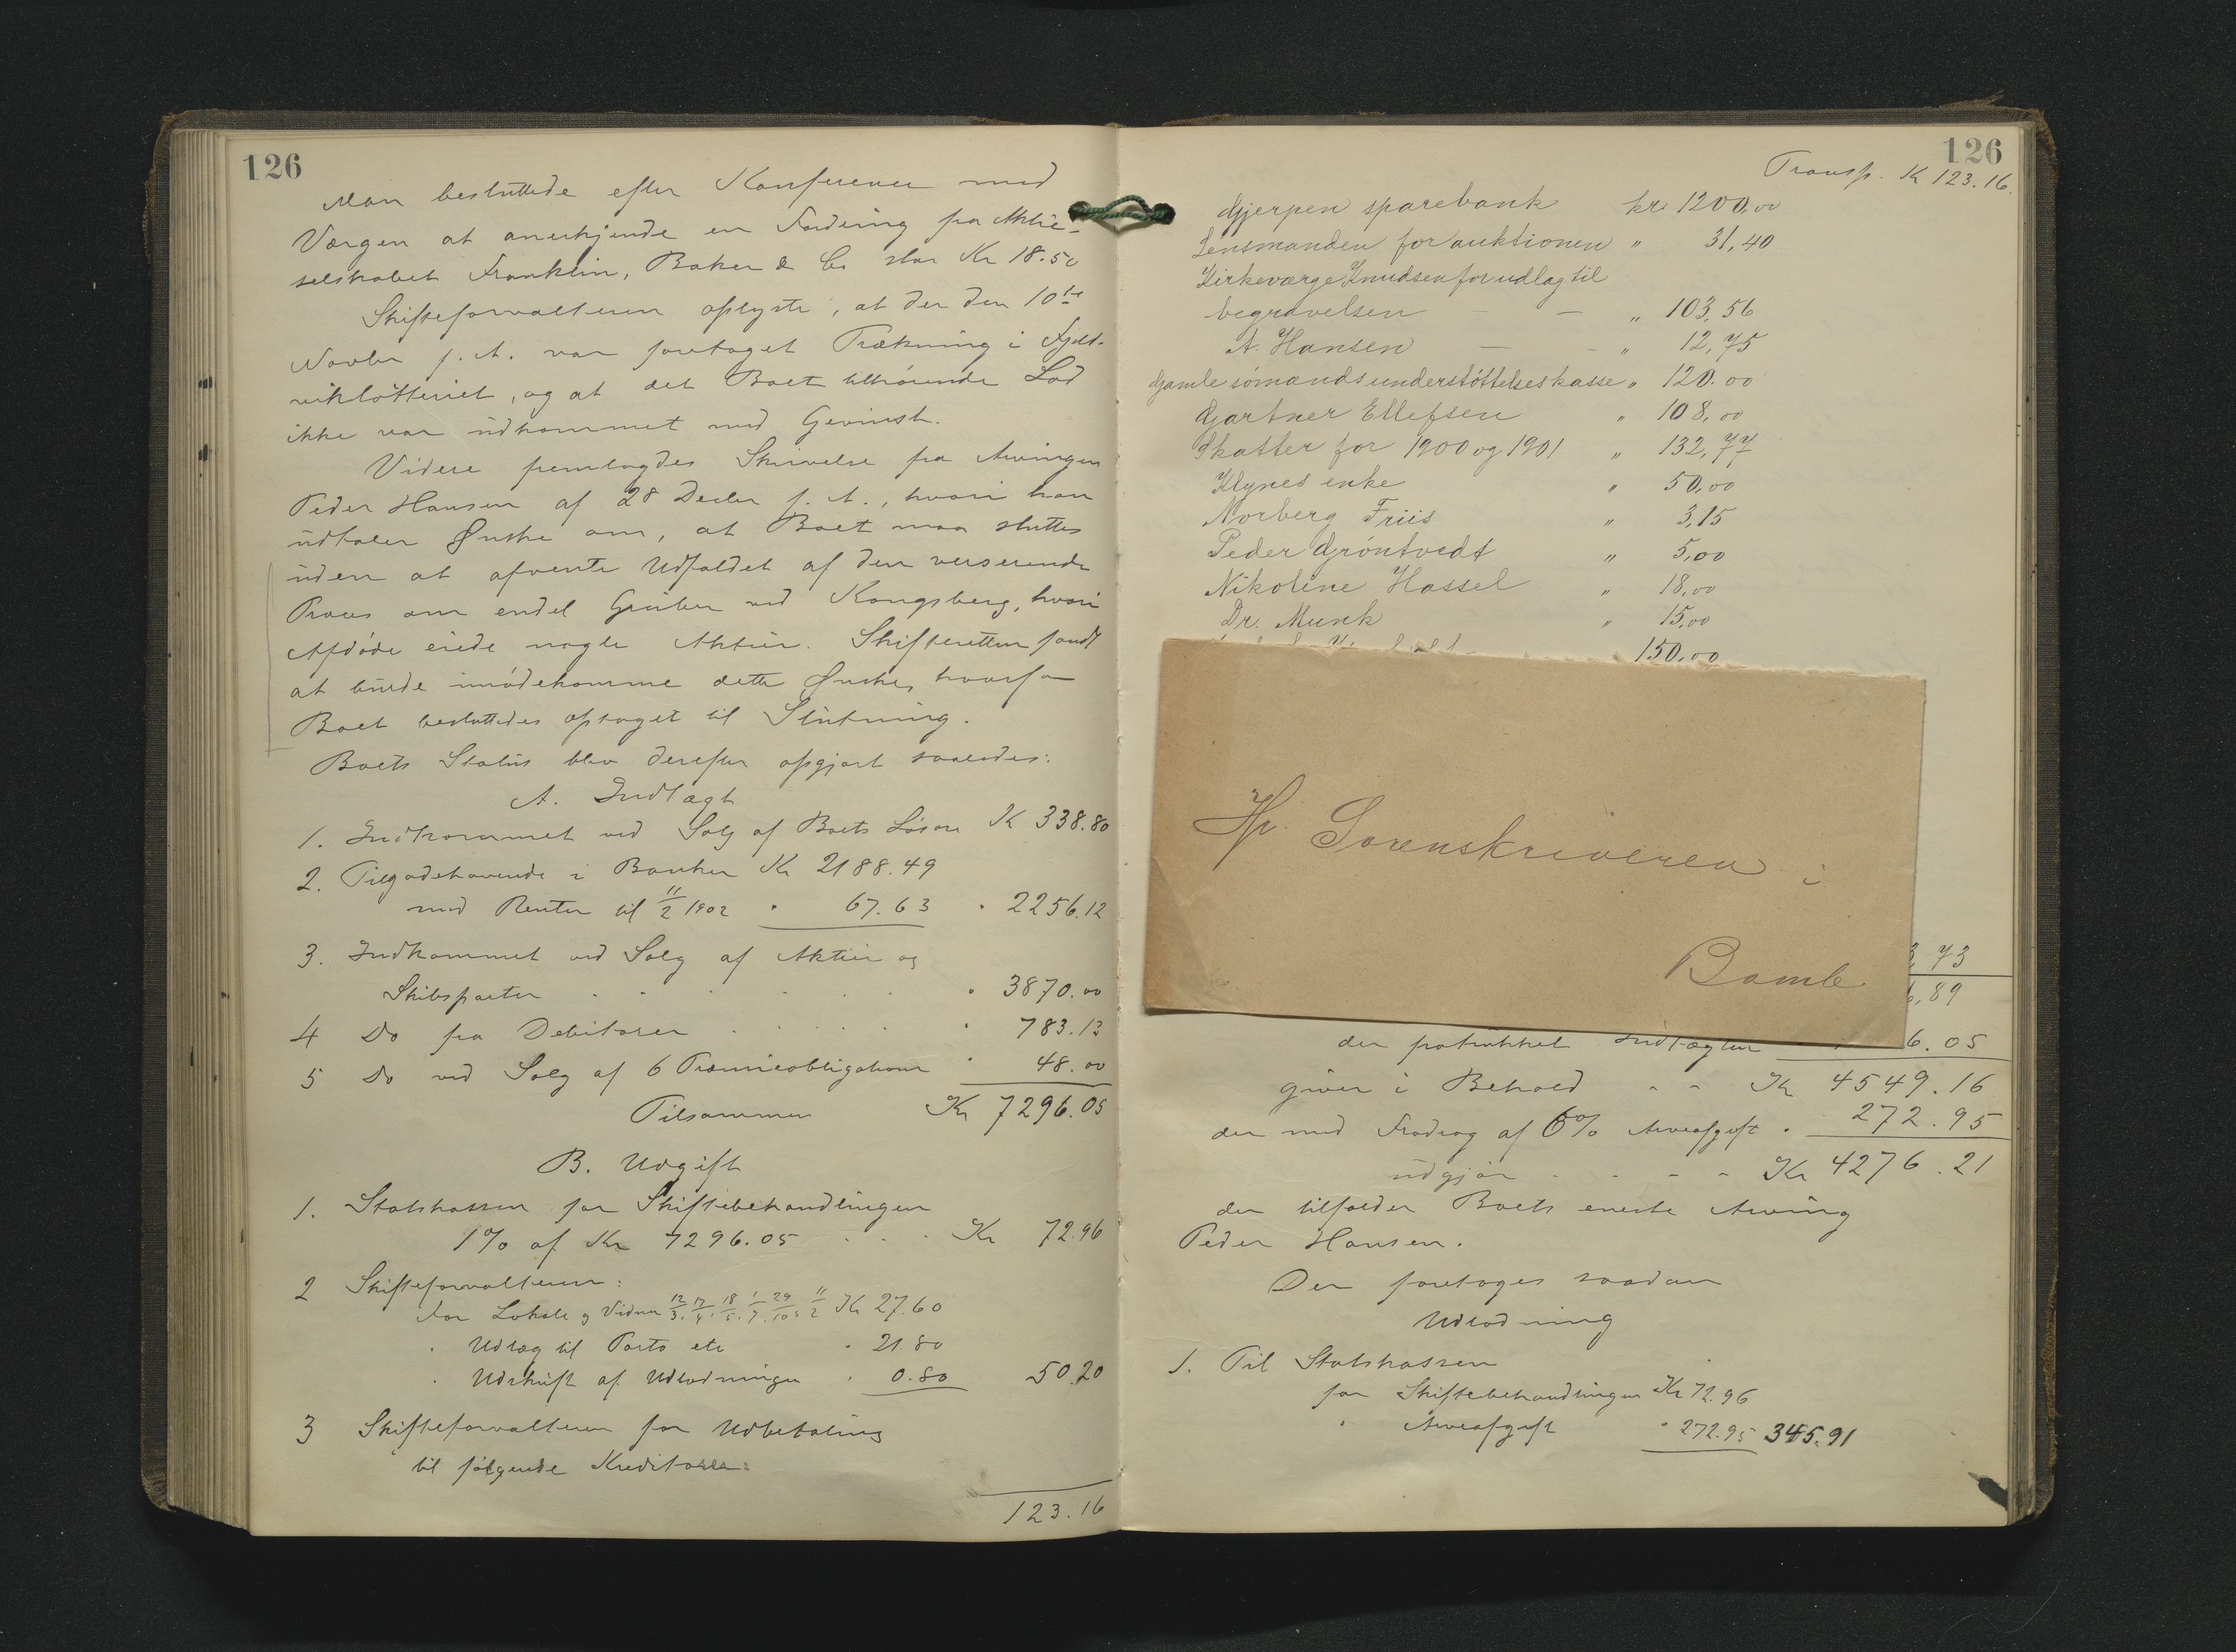 126
Man besluttede efter Konference med
Værgen at anerkjende en Fordring fra Aktie-
selskabet Franklin, Baker & Co stor Kr 18.50
Skifteforvalteren oplyste, at der den 10de
Novbr f. A. var foretaget Trækning i Fjeld-
viklotteriet, og at det Boet tilhørende Lod
ikke var udkommet med Gevinst.
Videre fremlagdes Skrivelse fra Arvingen
Peder Hansen af 28 Decbr f. A., hvori han
udtaler Ønske om, at Boet maa sluttes
uden at afvente Udfaldet af den verserende
Proces om endel Gruber ved Kongsberg, hvori
Afdøde eiede nogle Aktier. Skifteretten fandt
at burde imødekomme dette Ønske, hvorfor
Boet besluttedes optaget til Slutning.
Boets Status blev derefter opgjort saaledes:
A. Indtægt
1. Indkommet ved Salg af Boets Løsøre K 338.80
2. Tilgodehavende i Banken Kr 2188.49
med Renter til 11/2 1902 " 67.63 " 2256.12
3. Indkommet ved Salg af Aktier og
Skibsparter " 3870.00
4 Do fra Debitorer " 783.13
5 Do ved Salg af 6 Præmieobligationer " 48.00
Tilsammen Kr 7296.05
B. Udgift
1. Statskassen for Skiftebehandlingen
1% af Kr 7296.05 Kr 72.96
2 Skifteforvalteren:
For Lokale og Vidner 12/3, 17/4, 18/5, 1/7, 29/10, 11/2 Kr 27.60
" Udlæg til Porto etc " 21.80
" Udskrift af Udlodningen " 0.80 50.20
3 Skifteforvalteren for Udbetaling
til følgende Kreditorer:
123.16
126
Transp. K 123.16.
Gjerpen sparebank kr. 1200,00
Lensmanden for auktionen " 31,40
Kirkeværge Knudsen for udlag til
begravelsen — — " 103,56
A. Hansen — - " 12,75
Gamle sømands understøttelseskasse " 120.00
Gartner Ellefsen " 108,00
Skatter for 1900 og 1901 " 132,77
Klynes enke " 50,00
Norberg Friis " 3,15
Peder Grøntvedt " 5,00
Nikoline Hassel " 18,00
Dr. Munk " 15,00
150,00
Hr. Sorenskriveren i
Bamle
3,73
6,89
der fratrukket Indtægten 6.05
giver i Behold - - Kr 4549.16
der med Fradrag af 6% Arveafgift " 272.95
udgjør - - - - Kr 4276.21
der tilfalder Boets eneste Arving
Peder Hansen.
Der foretages saadan
Udlodning
1. Til Statskassen
for Skiftebehandlingen Kr 72.96
" Arveafgift " 272.95 345.91